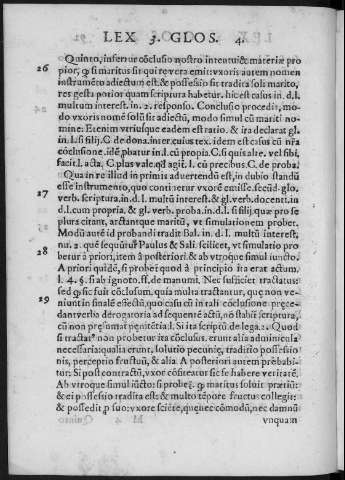 LEX 3. GLOS. 4.
Quinto, infertur cõclusio nostro intentui & materiæ pro
26
pior, ꝙ si maritus sit qui re vera emit: vxoris autem nomen
instrumẽto adiectum est, & possessio sit tradita soli marito,
res gesta potior quam scriptura habetur. hic est casus in. d. l.
multum interest. in. 2. responso. Conclusio procedit, mo-
do vxoris nomẽ solũ sit adiectũ, modo simul cũ mariti no-
mine: Etenim vtriusque eadem est ratio. & ira declarat gl.
in. l. si filij. C. de dona. inter. cuius tex. idem est casus cũ nr̃a
cõclusione. idẽ pbatur in. l. cũ propia. C. si quis alte. vel sibi,
facit. l. acta, C. plus vale. qd̃ agit. l. cũ precibus. C. de proba.
Qua in re illud in primis aduertendũ est, in dubio standũ
27
esse instrumento, quo continetur vxorẽ emisse. secũd. glo.
verb. scriptura. in. d. l. multũ interest. & gl. verb. docenti. in
d. l. cum propria. & gl. verb. proba. in. d. l. si filij. quæ pro se
plura citant. donec apparear maritũ, vt simulationem probet.
Modũ autẽ id probandi tradit Bal. in. d. l. multũ interest.
nu. 2. quẽ sequũtur Paulus & Sali. scilicet, vt simulatio pro
28
betur à priori, item à posteriori. & ab vtroque simul iuncto.
A priori quidẽ, si probet quod à principio ita erat actum.
l. 4. §. si ab ignoto. ff. de manumi. Nec sufficiet tractatus:
sed ꝙ sic fuit cõclusum. quia multa tractantur, que non ve-
29
niunt in finalẽ effectũ, quo casu cũ in tali cõclusione prece-
dant verba derogatoria ad sequentẽ actũ, nõ stabit scriptura,
cũ non presumat penitẽtia. l. Si ita scriptũ de lega. 2. Quod
si tractatꝰ non probetur ita cõclusus. erunt alia adminicula
necessaria: qualia erunt, solutio pecuniæ, traditio possessio
nis, perceptio fructuũ, & alia. A posteriori autem probabi-
tur: Si post contractũ, vxor cõfiteatur sic se habere veritatẽ.
Ab vtroque simul iũcto: si probet, ꝙ maritus soluit prætiũ:
& ei possessio tradita est: & multo tẽpore fructus collegit:
& possedit p suo: vxore sciẽte, que nec cõmodũ, nec damnũ
vnquam